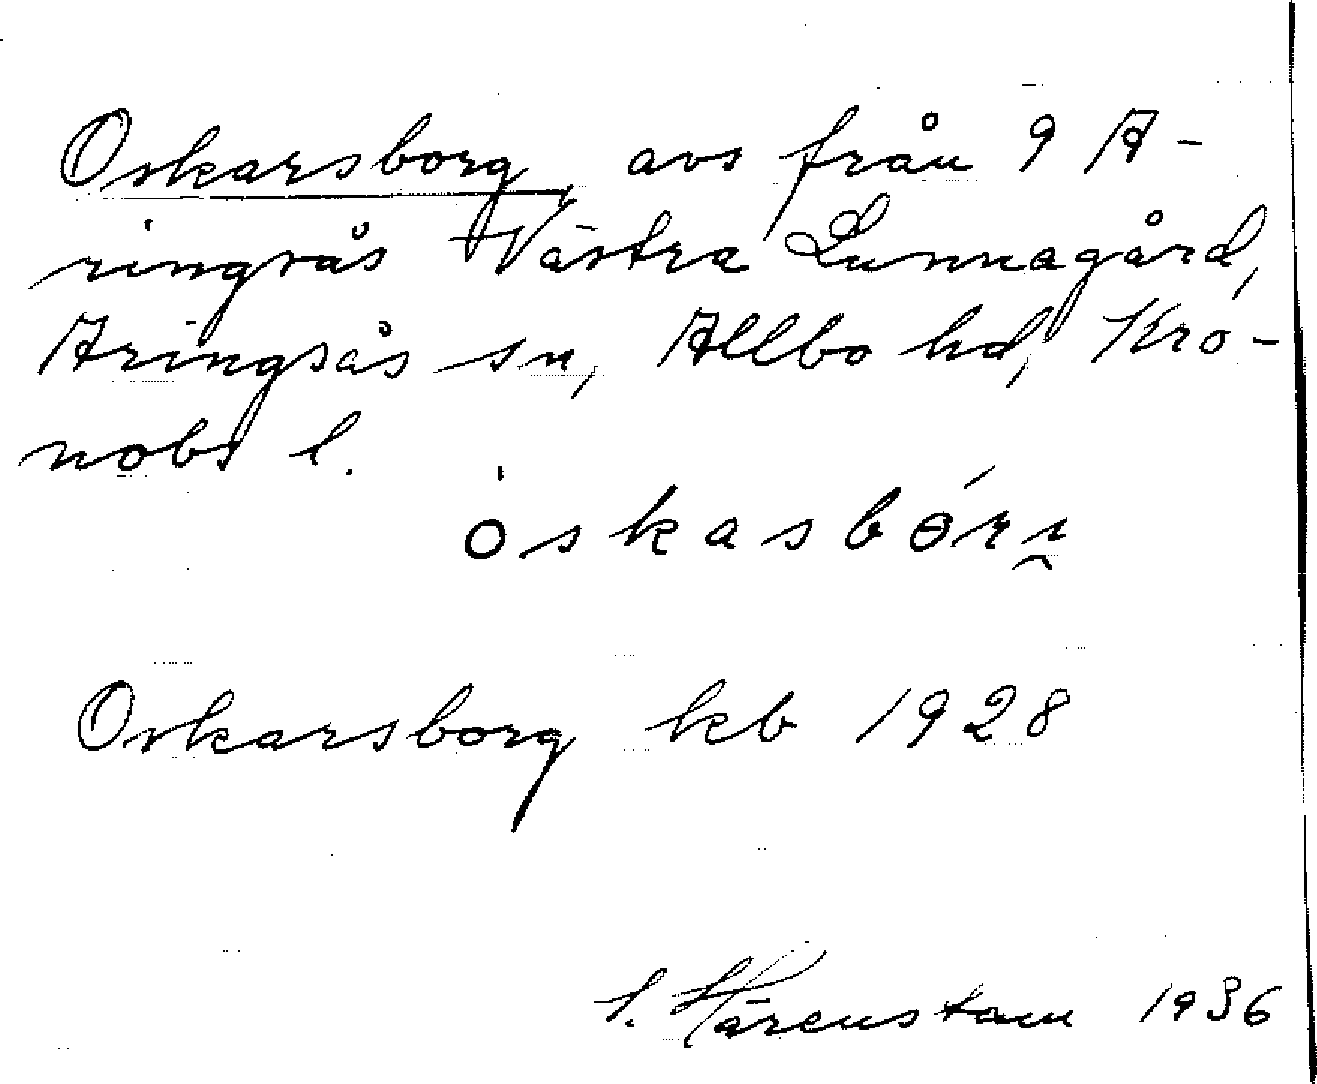 Oskarsborg, avs från 9 A-
ringsås Västra Lunnagård,
Aringsås sn, Allbo hd, Kro-
nobs l.
òskasbórı̯
Oskarsborg kb 1928
S. Härenstam 1936